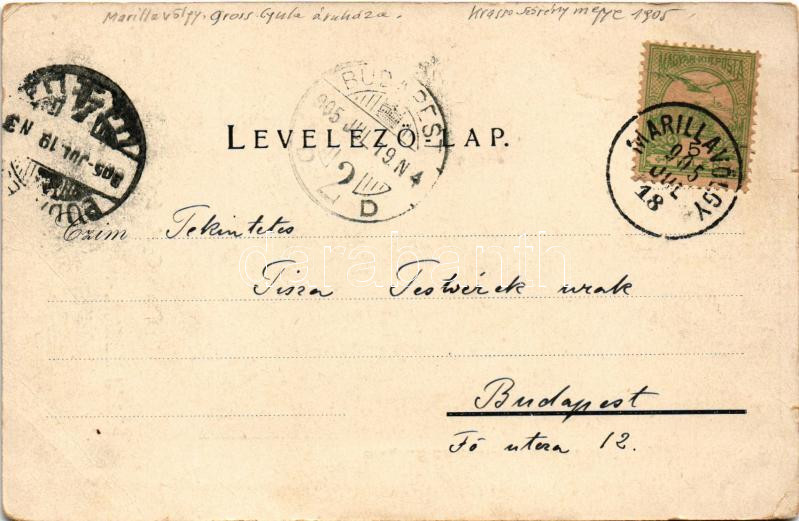 Marillavölgy. Gross Gyula áruháza. Krassó-Szörény megye 1905
MAGYAR KIR. POSTA
MARILLAVÖLGY
905
JUL
18
BUDAPEST
905 JUL 19. N 4
2
D
905 JUL 19 N3
LEVELEZŐ-LAP.
Czím Tekintetes
Tisza Testvérek urak
Budapest
Fő utcza 12.
darabanth